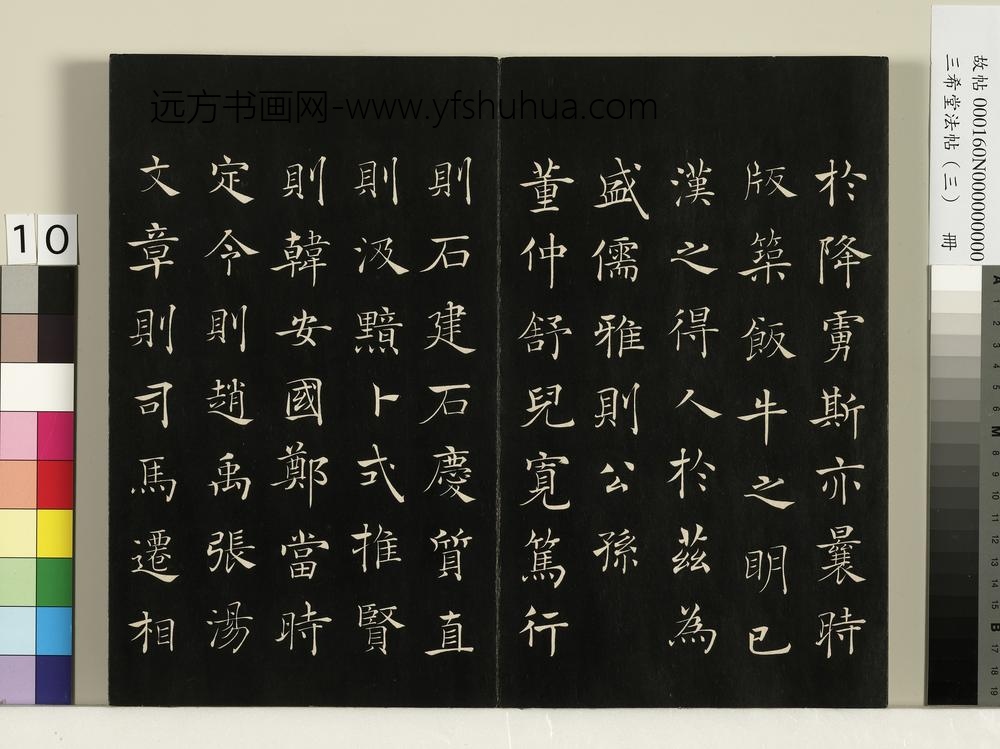 於降虜斯亦曩時
版築飯牛之明已
漢之得人於茲為
盛儒雅則公孫
董仲舒兒寬篤行
則石建石慶質直
則汲黯卜式推賢
則韓安國鄭當時
定令則趙禹張湯
文章則司馬遷相
远方书画网-www.yfshuhua.com
故帖 000160N000000000
三希堂法帖（三） 冊
10
A
1
2
3
4
5
6
M
8
9
10
11
12
13
14
15
B
17
18
19